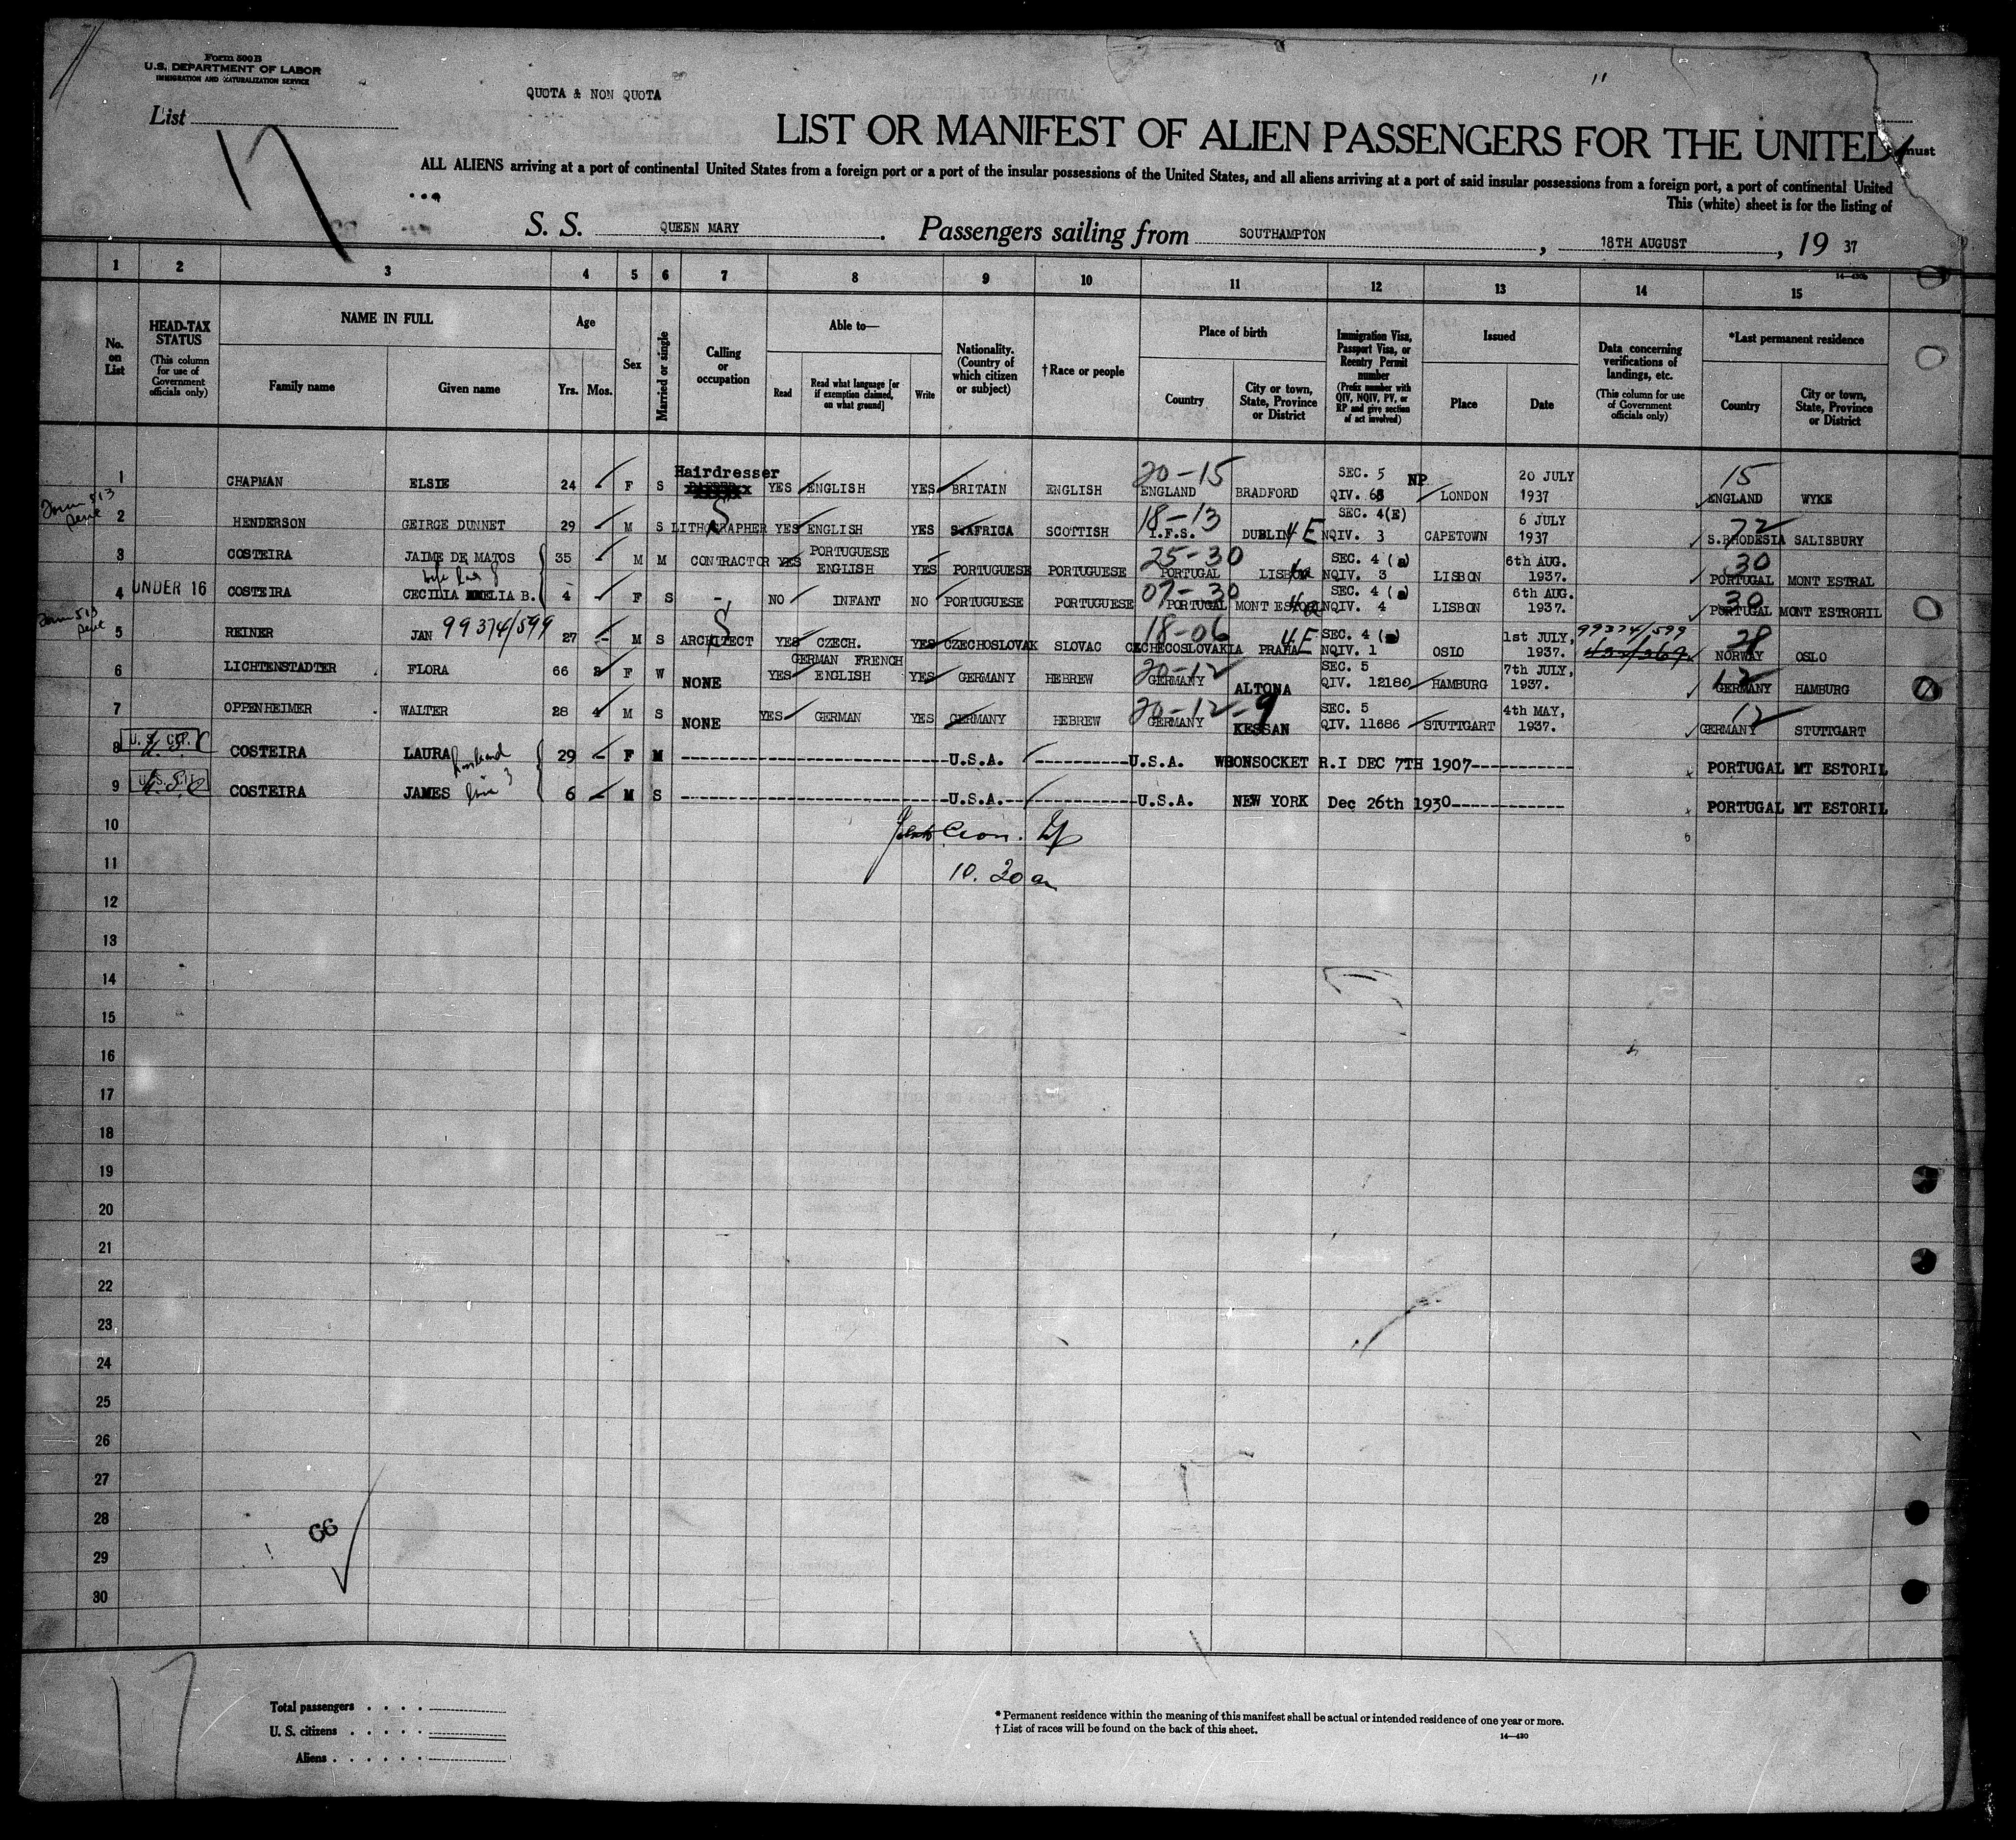 Form 500 B
U.S. DEPARTMENT OF LABOR
IMMIGRATION AND NATURALIZATION SERVICE
QUOTA & NON QUOTA
List
17
11
LIST OR MANIFEST OF ALIEN PASSENGERS FOR THE UNITED
must
ALL ALIENS arriving at a port of continental United States from a foreign port or a port of the insular possessions of the United States, and all aliens arriving at a port of said insular possessions from a foreign port, a port of continental United
This (white) sheet is for the listing of
S. S. QUEEN MARY. Passengers sailing from SOUTHAMPTON, 18TH AUGUST, 19 37
14—430b
1 2 3 4 5 6 7 8 9 10 11 12 13 14 15
No. on List
HEAD-TAX STATUS (This column for use of Government officials only)
NAME IN FULL Family name Given name
Age Yrs. Mos.
Sex
Married or single
Calling or occupation
Able to— Read Read what language [or if exemption claimed, on what ground] Write
Nationality. (Country of which citizen or subject)
†Race or people
Place of birth Country City or town, State, Province or District
Immigration Visa, Passport Visa, or Reentry Permit number (Prefix number with QIV, NQIV, PV, or RP and give section of act involved)
Issued Place Date
Data concerning verifications of landings, etc. (This column for use of Government officials only)
*Last permanent residence Country City or town, State, Province or District
Hairdresser 20-15 SEC. 5 NP 20 JULY 15
1 CHAPMAN ELSIE 24 F S YES ENGLISH YES BRITAIN ENGLISH ENGLAND BRADFORD QIV. 68 LONDON 1937 ENGLAND WYKE
Form 513 sent S 18-13 SEC. 4(E) 6 JULY 72
2 HENDERSON GEIRGE DUNNET 29 M S LITHOGRAPHER YES ENGLISH YES S.AFRICA SCOTTISH I.F.S. DUBLIN 4E NQIV. 3 CAPETOWN 1937 S.RHODESIA SALISBURY
PORTUGUESE 25-30 SEC. 4 (a) 6th AUG. 30
3 COSTEIRA JAIME DE MATOS 35 M M CONTRACTOR YES ENGLISH YES PORTUGUESE PORTUGUESE PORTUGAL LISBON NQIV. 3 LISBON 1937. PORTUGAL MONT ESTRAL
07-30 SEC. 4 (a) 6th AUG. 30
4 UNDER 16 COSTEIRA CECILIA AMELIA B. 4 - F S - NO INFANT NO PORTUGUESE PORTUGUESE PORTUGAL MONT ESTORIL NQIV. 4 LISBON 1937. PORTUGAL MONT ESTRORIL
Form 513 sent 99374/599 S 18-06 SEC. 4 (e) 1st JULY, 99374/599 28
5 REINER JAN 27 - M S ARCHITECT YES CZECH. YES CZECHOSLOVAK SLOVAC CECHECOSLOVAKIA PRAHA 4E NQIV. 1 OSLO 1937. NORWAY OSLO
GERMAN FRENCH 20-12 SEC. 5 7th JULY, 12
6 LICHTENSTADTER FLORA 66 8 F W NONE YES ENGLISH YES GERMANY HEBREW GERMANY ALTONA QIV. 12180 HAMBURG 1937. GERMANY HAMBURG
20-12-9 SEC. 5 4th MAY, 12
7 OPPENHEIMER WALTER 28 4 M S NONE YES GERMAN YES GERMANY HEBREW GERMANY KESSAN QIV. 11686 STUTTGART 1937. GERMANY STUTTGART
8 U.S. CIT. COSTEIRA LAURA husband 29 - F M U.S.A. U.S.A. WOONSOCKET R.I DEC 7TH 1907 PORTUGAL MT ESTORIL
9 U.S. CIT. COSTEIRA JAMES line 3 6 - M S U.S.A. U.S.A. NEW YORK Dec 26th 1930 PORTUGAL MT ESTORIL
10
11 10.20 am
12
13
14
15
16
17
18
19
20
21
22
23
24
25
26
27
28
29
30
66
17
Total passengers
U. S. citizens
Aliens
* Permanent residence within the meaning of this manifest shall be actual or intended residence of one year or more.
† List of races will be found on the back of this sheet.
14—430